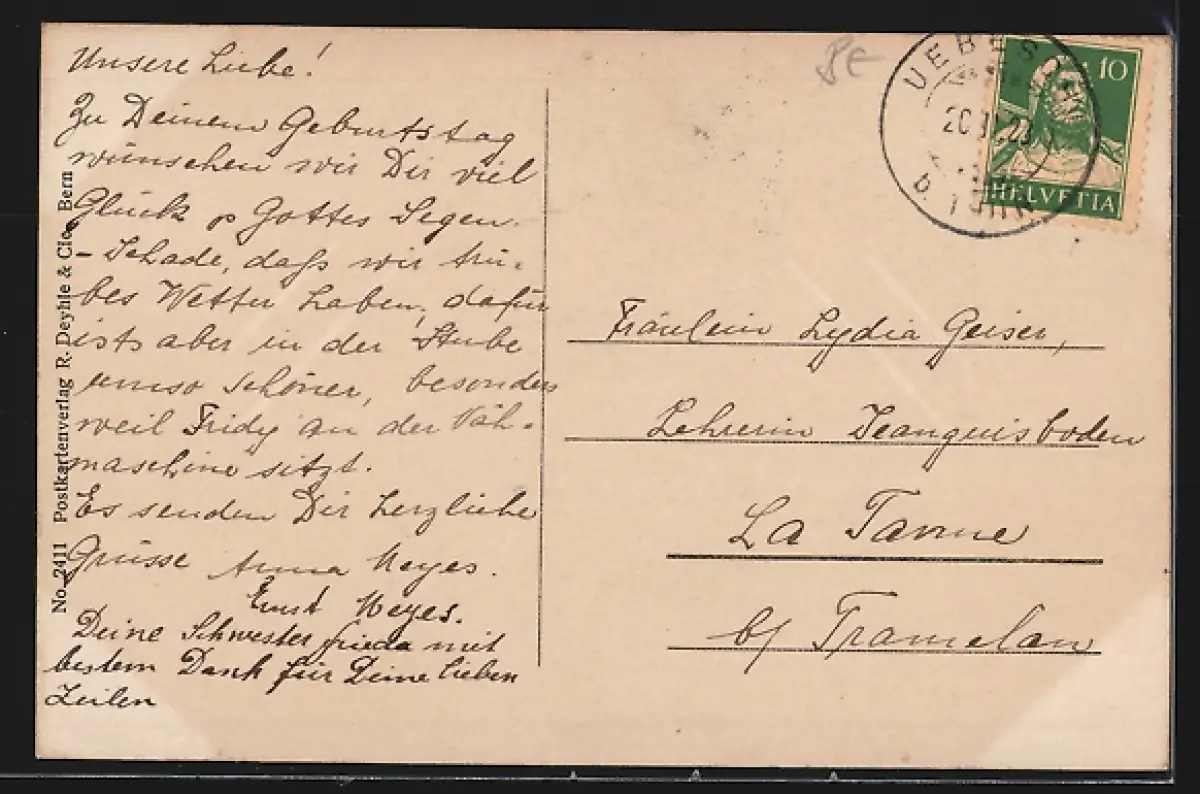 Unsere Liebe!
Zu Deinem Geburtstag
wünschen wir Dir viel
Glück & Gottes Segen.
- Schade, daß wir trü-
bes Wetter haben, dafür
ists aber in der Stube
umso schöner, besonders
weil Fridy an der Näh-
maschine sitzt.
Es senden Dir herzliche
Grüsse Anna Meyes.
Ernst Meyes.
Deine Schwester Frieda mit
bestem Dank für Deine lieben
Zeilen
No. 2411 Postkartenverlag R. Deyhle & Cie., Bern
BE
UEBES
20
b. THUN
10
HELVETIA
Fräulein Lydia Geiser,
Lehrerin Jeanguisboden
La Tanne
b/ Tramelan